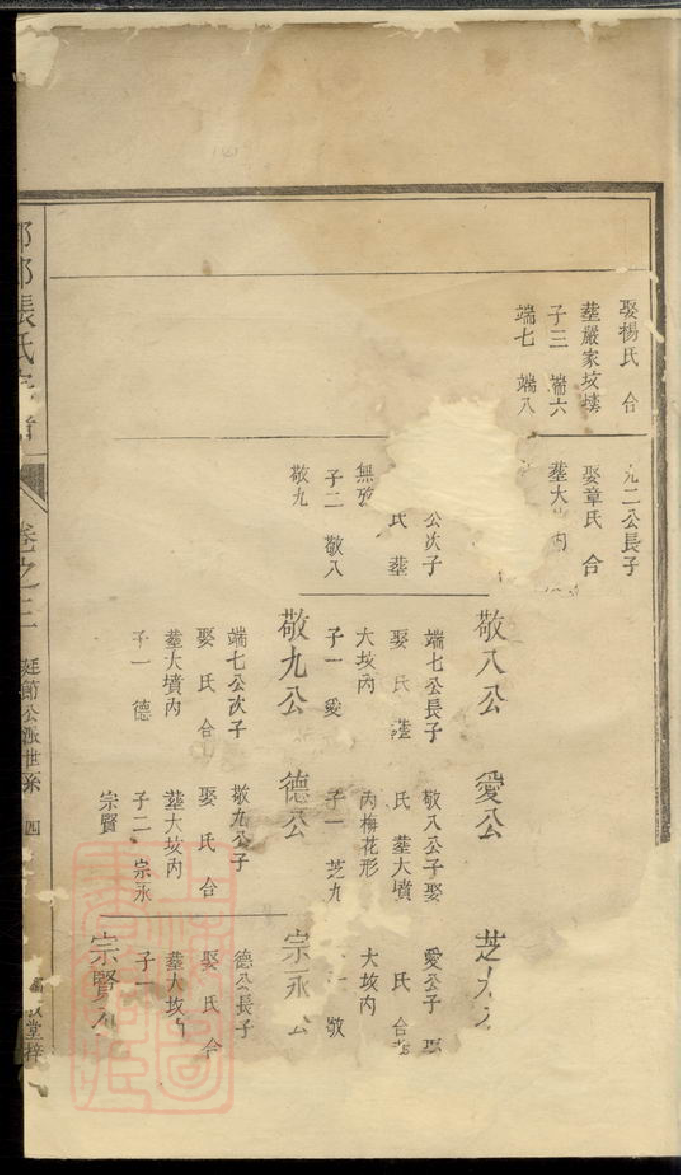 娶楊氏 合
塟嚴家坟
子三 端六
端七 端八
九二公長子
娶章氏 合
塟大 内
公次子
氏 塟
無
子二 敬八
敬九
敬八公
端七公長子
娶 氏
大坟内
子一 愛
敬九公
端七公次子
娶 氏 合
塟大墳内
子一 德
愛公
敬八公子娶
氏 塟大墳
内梅花形
子一 芝九
德公
敬九公子
娶 氏 合
塟大坟内
子二 宗永
宗賢
芝九
愛公子
氏 合
大坟内
敬
宗永公
德公長子
娶 氏 合
塟大坟内
子一
宗賢
張氏宗譜
卷之三
廷節公派世系 四
堂梓